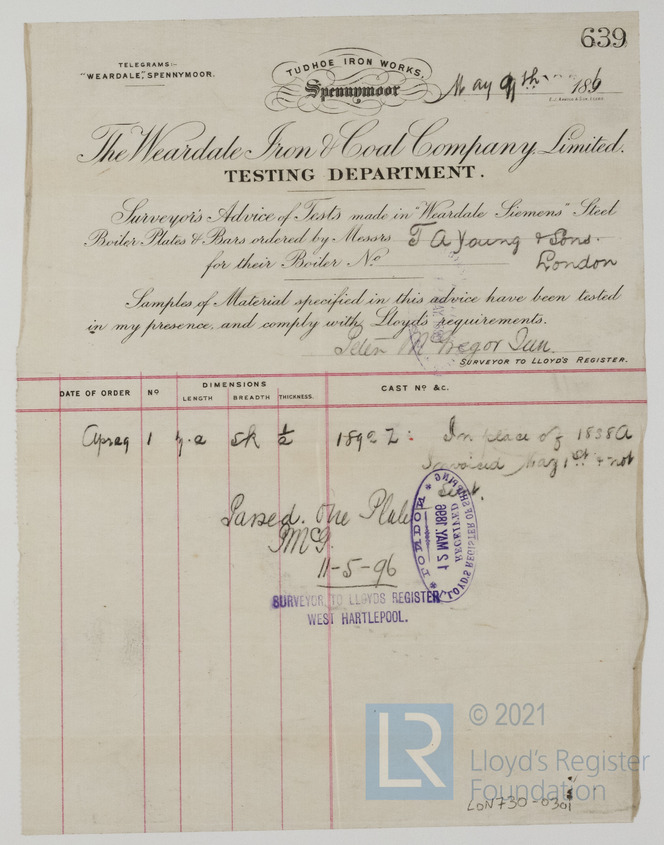 639
TELEGRAMS:-
"WEARDALE," SPENNYMOOR.
TUDHOE IRON WORKS,
Spennymoor
May 9th 1896
The Weardale Iron & Coal Company, Limited.
TESTING DEPARTMENT.
Surveyor's Advice of Tests made in "Weardale Siemens" Steel
Boiler Plates & Bars ordered by Messrs T A Young & Sons.
for their Boiler No London
Samples of Material specified in this advice have been tested
in my presence, and comply with Lloyd's requirements.
Peter McGregor Jun.
SURVEYOR TO LLOYD'S REGISTER.
DATE OF ORDER No DIMENSIONS LENGTH BREADTH THICKNESS. CAST No &c.
1 ½ 1892 In place of 1838A
Invoiced May 1st & not
Sent.
Passed. One Plate
PMcG.
11-5-96
LLOYD'S REGISTER OF SHIPPING
RECEIVED
12 MAY 1896
* LONDON *
SURVEYOR TO LLOYDS REGISTER
WEST HARTLEPOOL.
LR
© 2021
Lloyd's Register
Foundation
LON730-0301